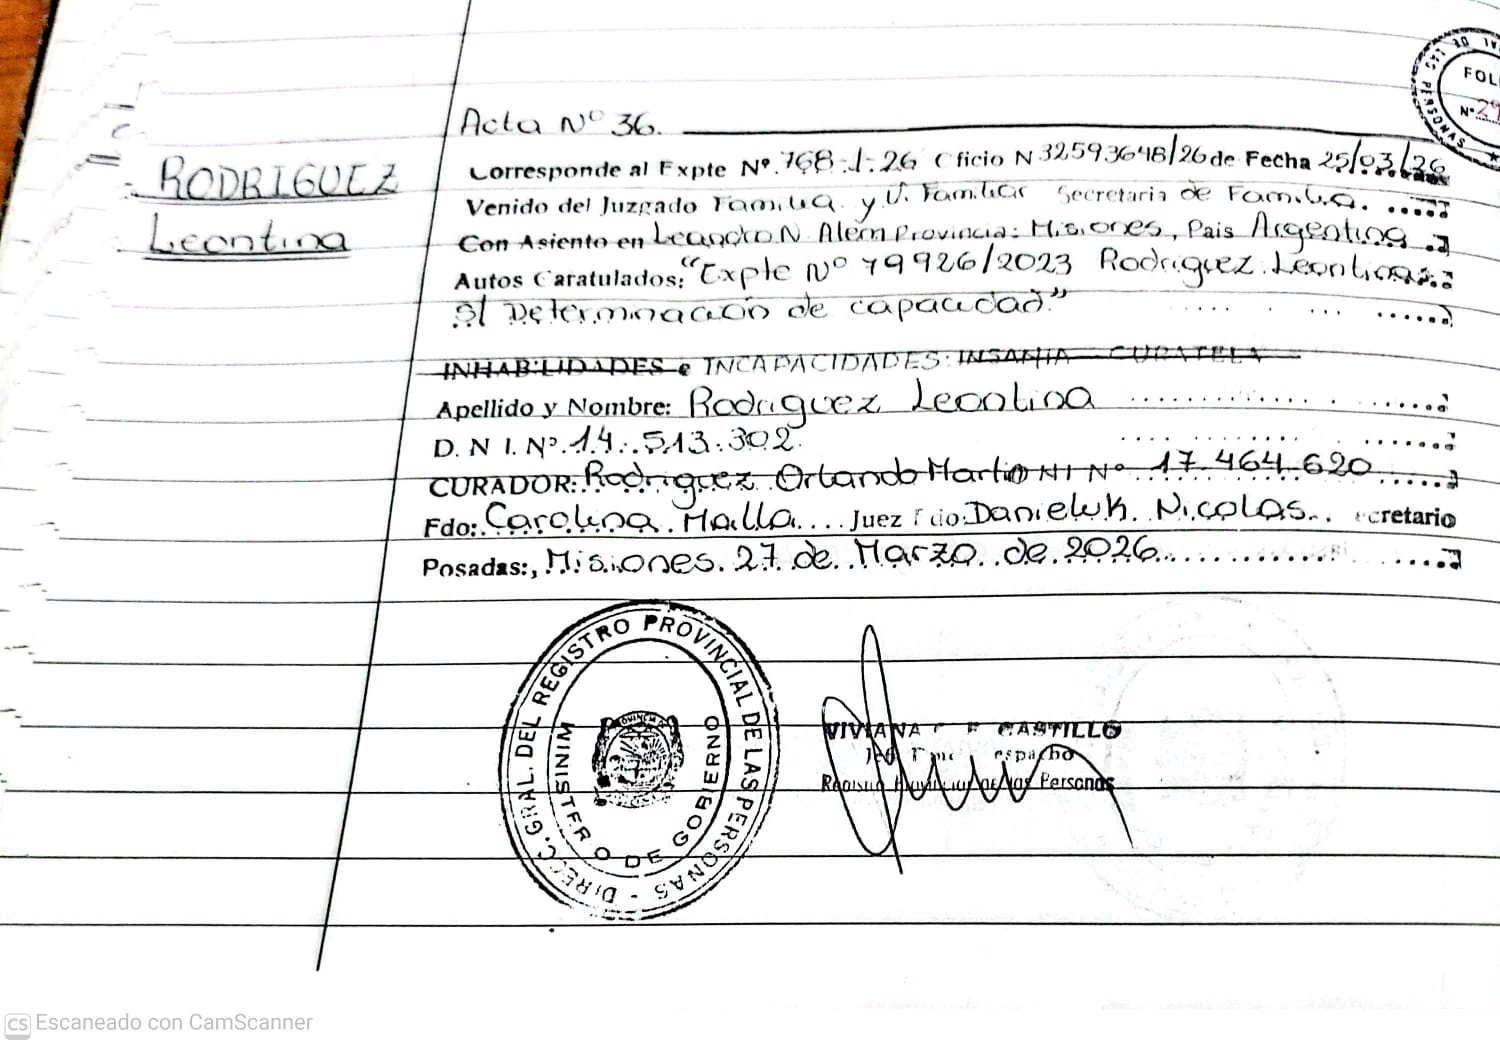 Acta Nº 36.
RODRIGUEZ
Leontina
Corresponde al Expte Nº. 768.-J.-26 Oficio N 32593648/26 de Fecha 25/03/26
Venido del Juzgado Familia y V. Familiar Secretaria de Familia.
Con Asiento en Leandro N. Alem Provincia: Misiones, Pais Argentina
Autos Caratulados: "Expte Nº 79926/2023 Rodriguez Leontina
S/ Determinación de capacidad"
INHABILIDADES e INCAPACIDADES: INSANIA - CURATELA
Apellido y Nombre: Rodriguez Leontina
D. N I. Nº. 14.513.302.
CURADOR: Rodriguez Orlando Martin NI Nº 17.464.620
Fdo: Carolina Malla Juez Fdo: Danieluk Nicolas ecretario
Posadas:, Misiones 27 de Marzo de 2026
DIRECC. GRAL. DEL REGISTRO PROVINCIAL DE LAS PERSONAS -
MINISTERIO DE GOBIERNO
VIVIANA CASTILLO
espacho
las Personas
DE LAS PERSONAS
FOLI
Nº
CS Escaneado con CamScanner